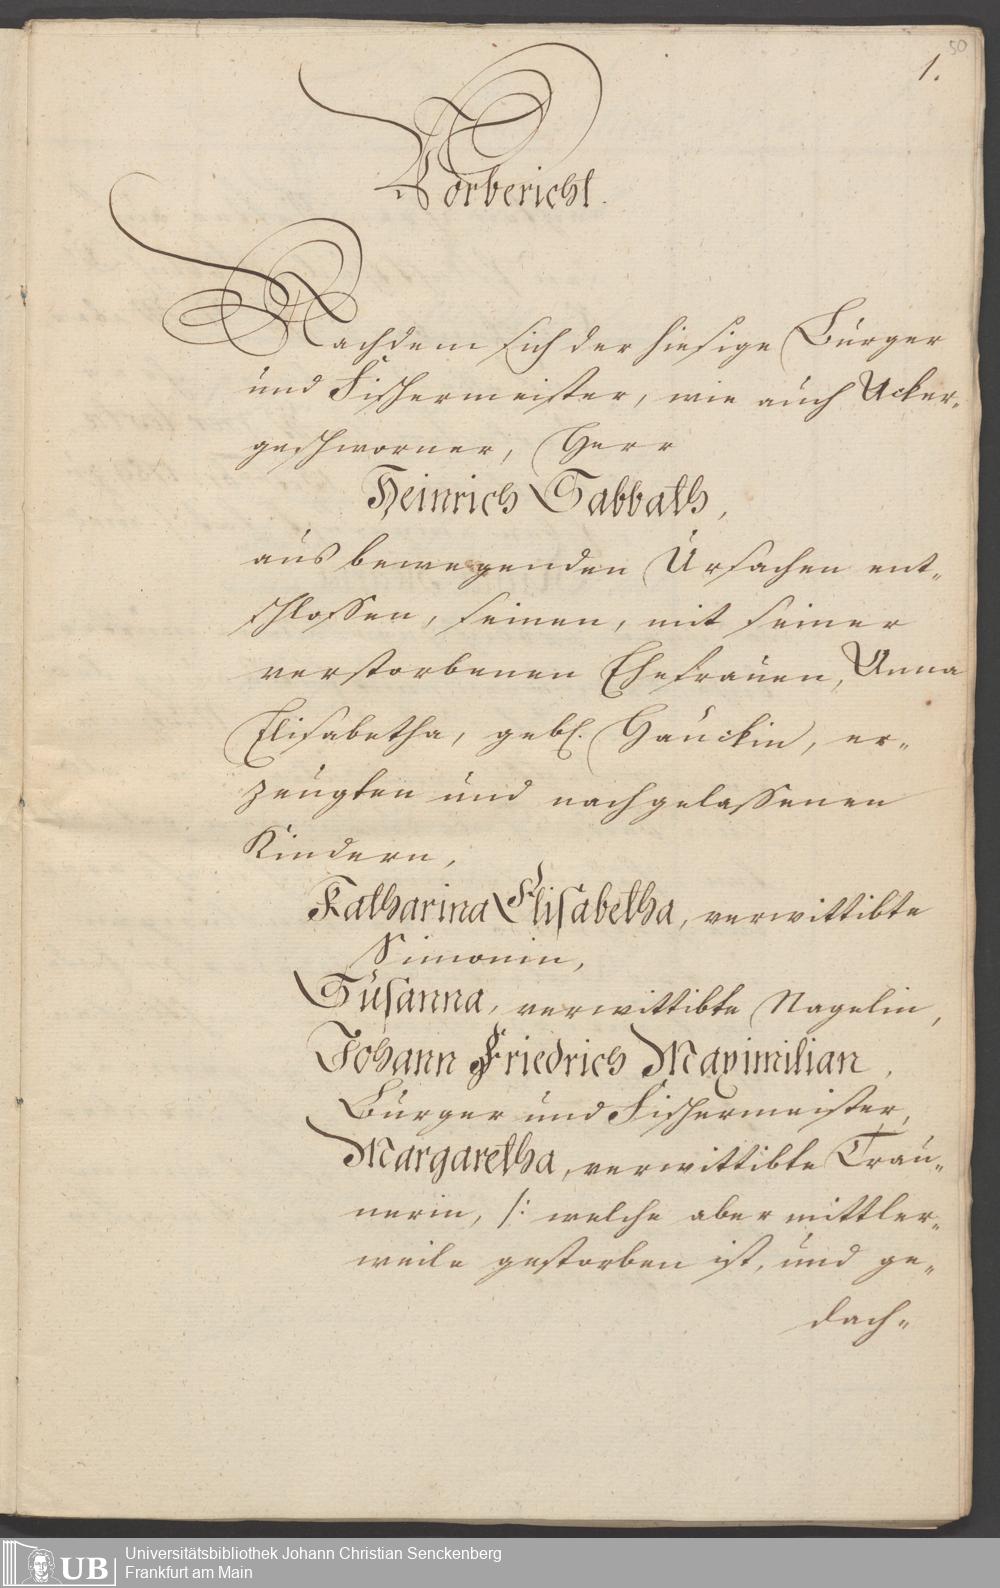 50
1.
Vorbericht.
Nachdem sich der hiesige Bürger
und Fischermeister, wie auch Acker-
geschworner, Herr
Heinrich Sabbath,
aus bewegenden Ursachen ent-
schlossen, seinen, mit seiner
verstorbenen Ehefrauen, Anna
Elisabetha, gebl. Hauckin, er-
zeugten und nachgelassenen
Kindern,
Katharina Elisabetha, verwittibte
Simonin,
Susanna, verwittibte Nagelin,
Johann Friedrich Maximilian,
Bürger und Fischermeister,
Margaretha, verwittibte Trau-
nerin, /: welche aber mittler-
weile gestorben ist, und ge-
dach-
UB
Universitätsbibliothek Johann Christian Senckenberg
Frankfurt am Main